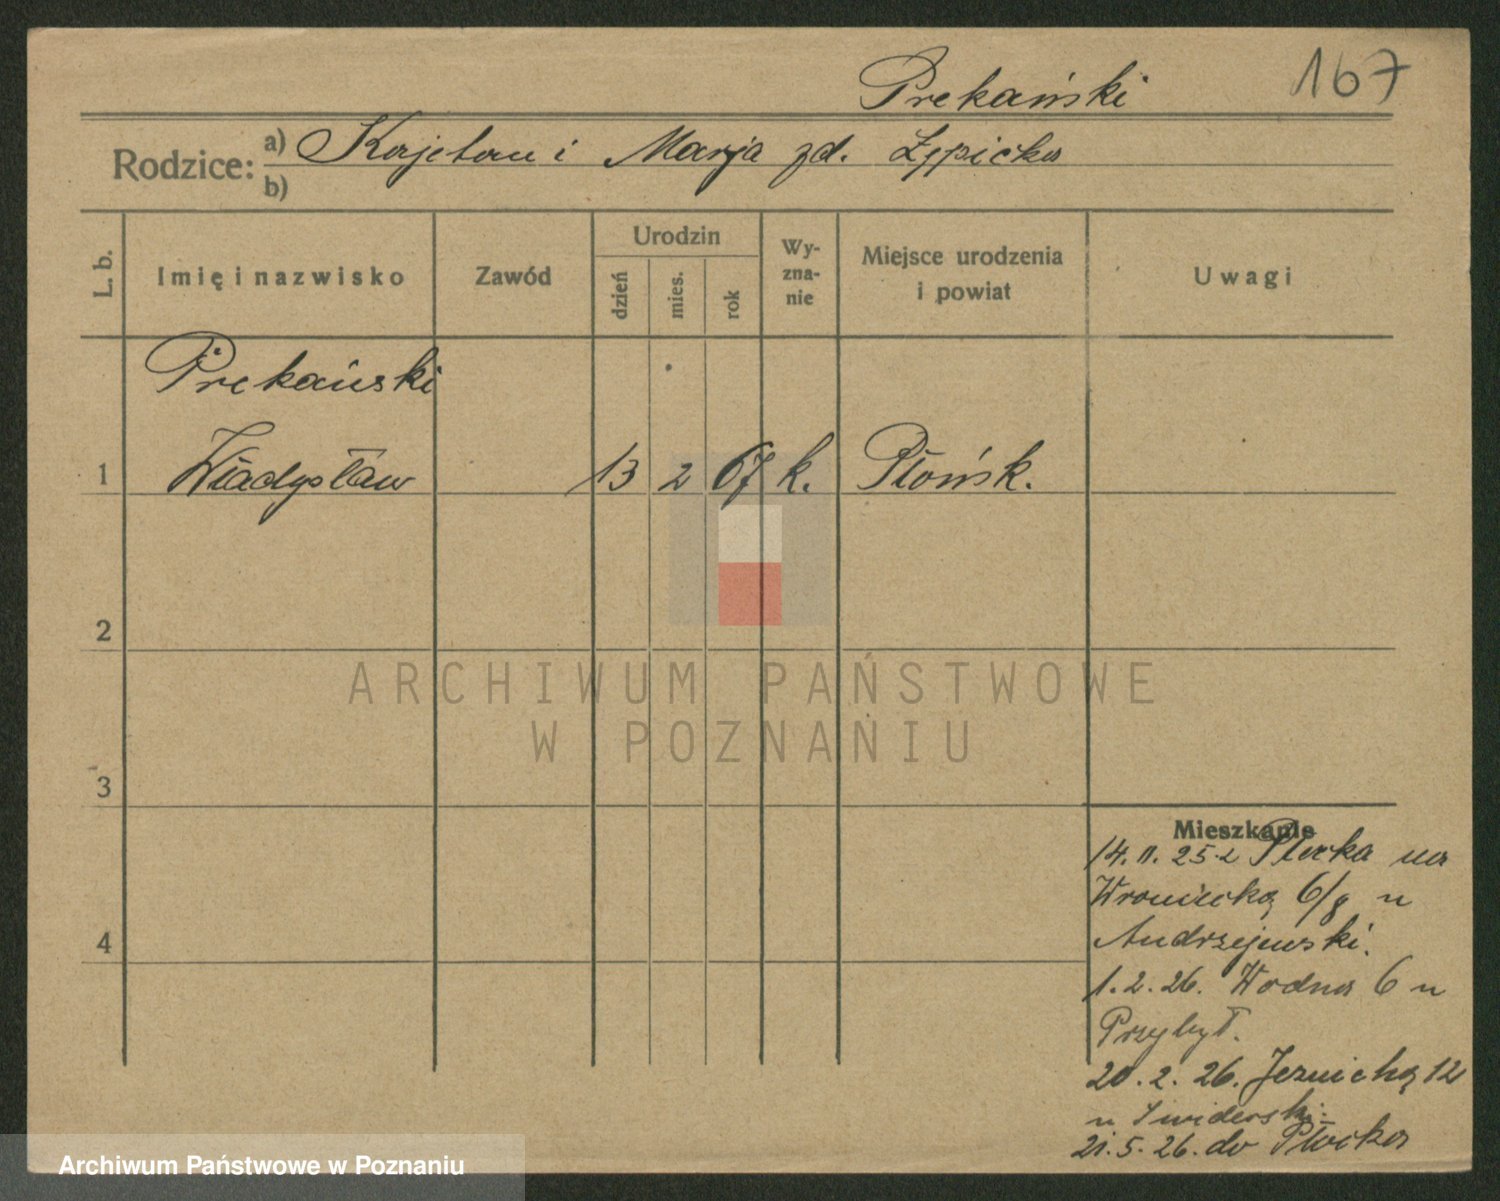 Prekański
167
Rodzice: a) Kajetan i Marja zd. Łępicka
b)
L. b.
Imię i nazwisko
Zawód
Urodzin
dzień
mies.
rok
Wy-
zna-
nie
Miejsce urodzenia
i powiat
Uwagi
Prekański
1 Władysław 13 2 67 k. Płońsk.
2
3
4
Mieszkanie
14. II. 25 z Płocka na
Wroniecką 6/8 u
Andrzejewski.
1. 2. 26. Wodna 6 u
Przybył.
20. 2. 26. Jeznicką 12
u Swiderski.
21. 5. 26. do Płocka
ARCHIWUM PAŃSTWOWE
W POZNANIU
Archiwum Państwowe w Poznaniu